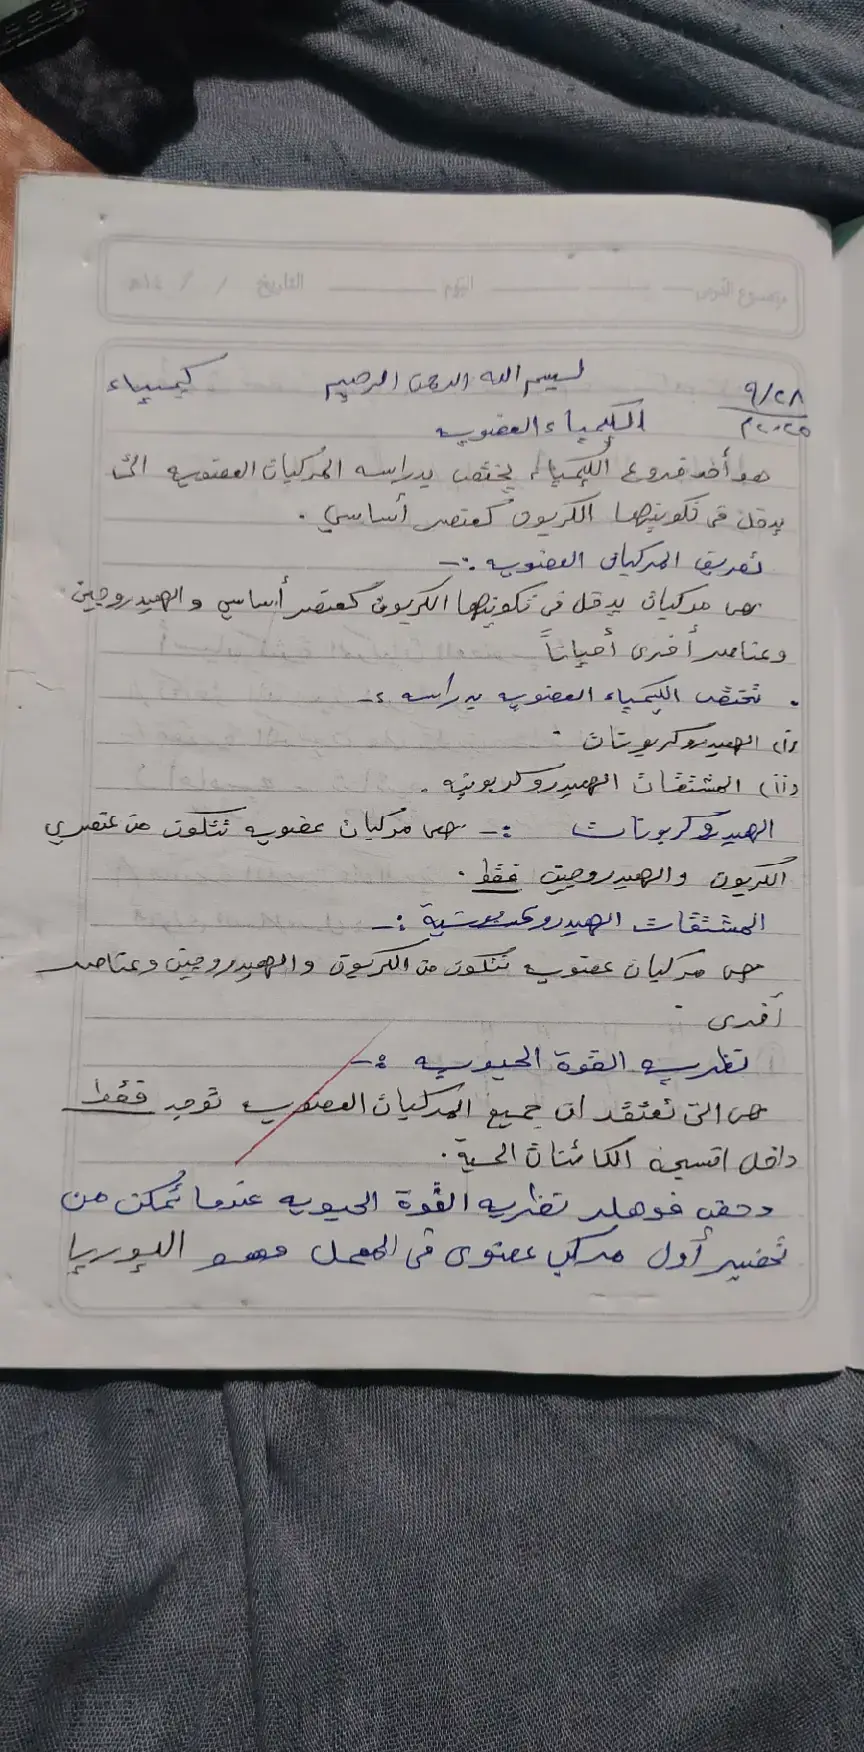 موضوع الدرس اليوم التاريخ / / ١٤هـ
٩/٢٨ بسم الله الرحمن الرحيم كيمياء
٢٠٢٥م الكيمياء العضويه
هو أحد فروع الكيمياء يختص بدراسه المركبات العضويه التى
يدخل فى تكوينها الكربون كعنصر أساسي .
تعريف المركبات العضويه :-
هى مركبات يدخل فى تكوينها الكربون كعنصر أساسي والهيدروجين
وعناصر أخرى أحياناً
. تختص الكيمياء العضويه بدراسه :-
(i) الهيدروكربونات .
(ii) المشتقات الهيدروكربونيه .
الهيدروكربونات :- هى مركبات عضويه تتكون من عنصري
الكربون والهيدروجين فقط .
المشتقات الهيدروكربونية :-
هى مركبات عضويه تتكون من الكربون والهيدروجين وعناصر
أخرى .
نظريه القوة الحيويه :-
هى التى تعتقد ان جميع المركبات العضويه توجد فقط
داخل انسجة الكائنات الحية .
دحض فوهلر نظريه القوة الحيويه عندما تمكن من
تحضير أول مركب عضوى فى المعمل وهو اليوريا